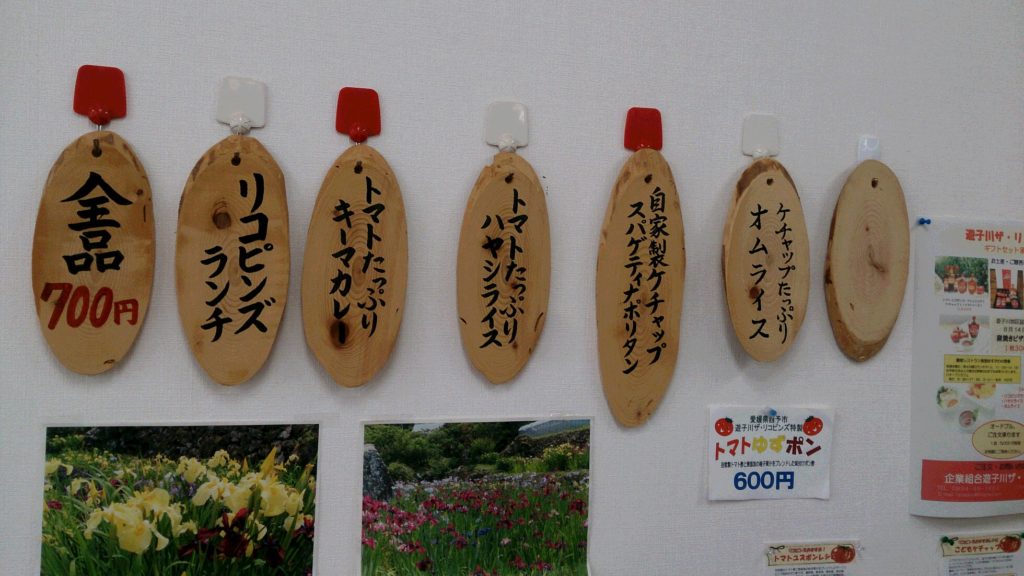 全品
700円
リコピンズ
ランチ
トマトたっぷり
キーマカレー
トマトたっぷり
ハヤシライス
自家製ケチャップ
スパゲティナポリタン
ケチャップたっぷり
オムライス
愛媛県西予市
遊子川ザ・リコピンズ特製
トマトゆずポン
600円
遊子川ザ・リ
ギフトセット
オードブル
ご注文承ります
企業組合遊子川ザ・
トマトユズポンレシ
こどもケチャップ